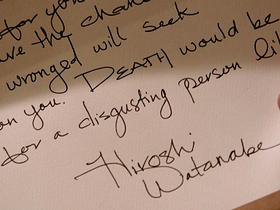 for you
have the chance
wronged will seek
on you. DEATH would be
for a disgusting person li
Hiroshi
Watanabe